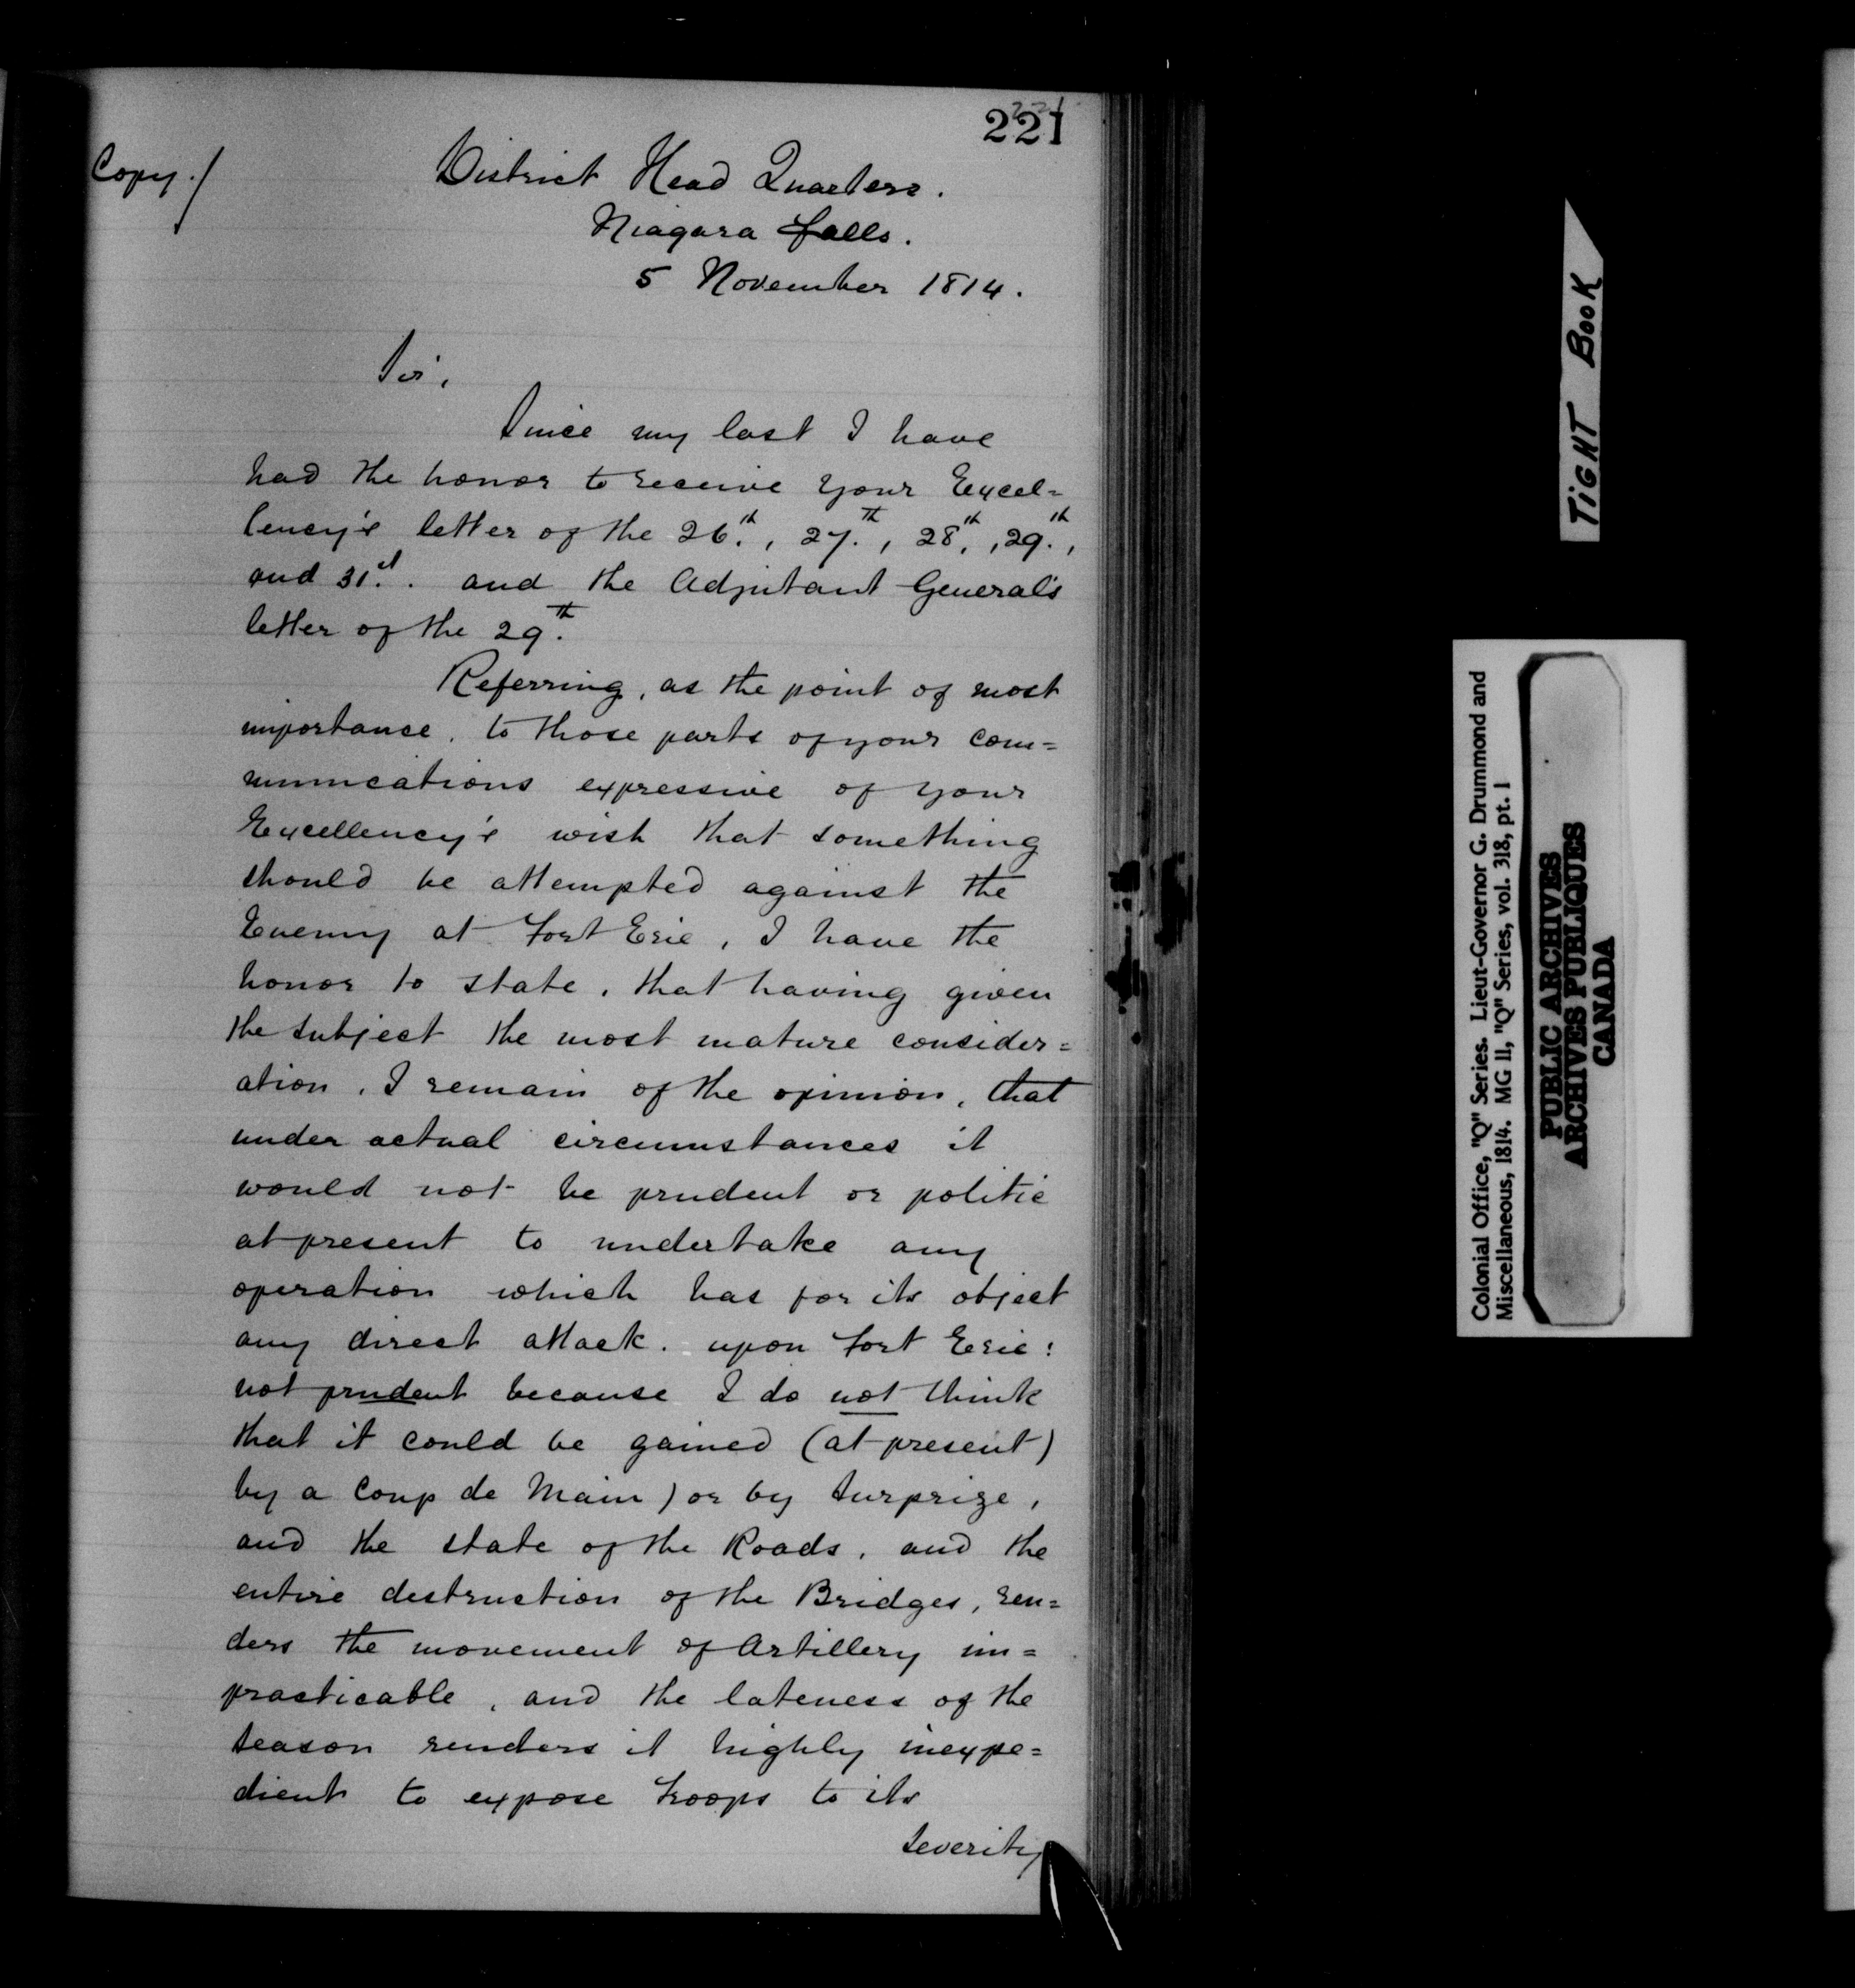 221
221
Copy./
District Head Quarters.
Niagara Falls.
5 November 1814.
Sir,
Since my last I have
had the honor to receive your Excel=
lency's letter of the 26th., 27th., 28th., 29th.,
and 31st.. and the Adjutant General's
letter of the 29th.
Referring, as the point of most
importance, to those parts of your com=
munications expressive of your
Excellency's wish that something
should be attempted against the
Enemy at Fort Erie, I have the
honor to state, that having given
the subject the most mature consider=
ation, I remain of the opinion, that
under actual circumstances it
would not be prudent or politic
at present to undertake any
operation which has for its object
any direct attack. upon Fort Erie:
not prudent because I do not think
that it could be gained (at present)
by a Coup de Main) or by surprize,
and the state of the Roads, and the
entire destruction of the Bridges, ren=
ders the movement of Artillery im=
practicable, and the lateness of the
season renders it highly inexpe=
dient to expose troops to its
severity
TIGHT BOOK
Colonial Office, "Q" Series. Lieut-Governor G. Drummond and
Miscellaneous, 1814. MG 11, "Q" Series, vol. 318, pt. 1
PUBLIC ARCHIVES
ARCHIVES PUBLIQUES
CANADA